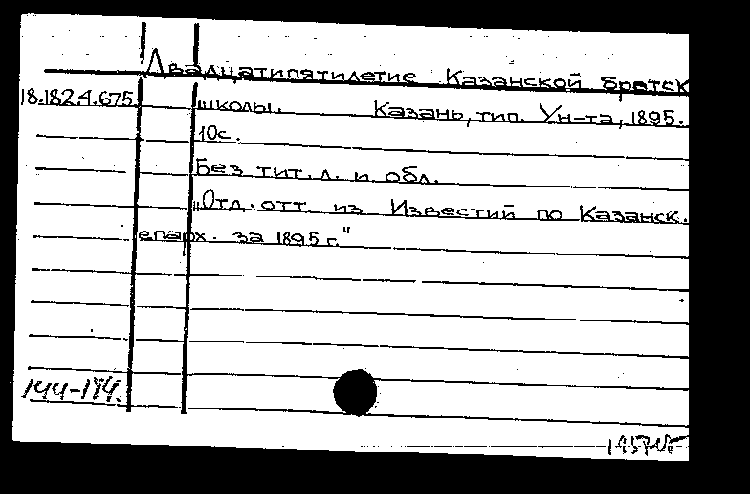 Двадцатипятилетие Казанской братск
18.182.4.675. школы. Казань, тип. Ун-та, 1895.
10с.
Без тит. л. и обл.
"Отд. отт. из Известий по Казанск.
епарх. за 1895 г."